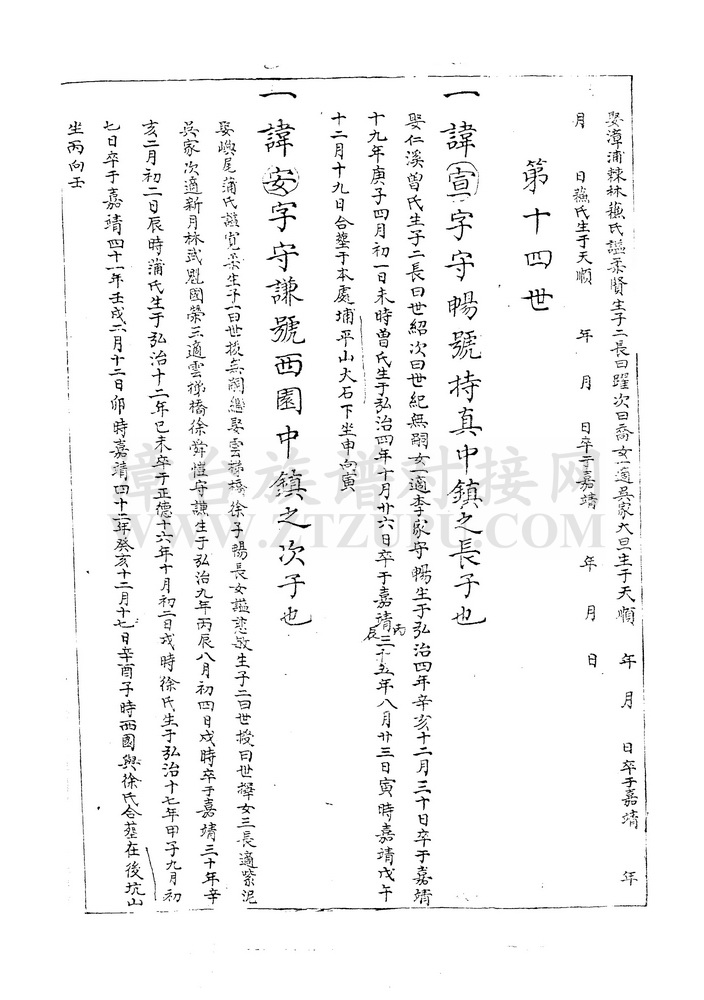 娶漳浦棘林蘓氏謚柔賢生子二長曰躍次曰喬女一適吳家大旦生于天順 年 月 日卒于嘉靖 年
月 日蘓氏生于天順 年 月 日卒于嘉靖 年 月 日
第十四世
一諱宣字守暢號持真中鎮之長子也
娶仁溪曾氏生子二長曰世紹次曰世紀無嗣女一適李家守暢生于弘治四年辛亥十二月三十日卒于嘉靖
十九年庚子四月初一日未時曾氏生于弘治四年十月廿六日卒于嘉靖三十五年丙辰八月廿三日寅時嘉靖戊午
十二月十九日合塟于本處埔平山大石下坐申向寅
一諱安字守謙號西園中鎮之次子也
娶嶼尾蒲氏謚寬柔生子一曰世棱無嗣繼娶雲梯橋徐子暢長女謚慈敏生子二曰世授曰世擇女三長適紫泥
吳家次適新月林武毘國榮三適雲梯橋徐舜愷守謙生于弘治九年丙辰八月初四日戌時卒于嘉靖三十年辛
亥二月初二日辰時蒲氏生于弘治十二年己未卒于正德十六年十月初二日戌時徐氏生于弘治十七年甲子九月初
七日卒于嘉靖四十一年壬戌六月十二日卯時嘉靖四十二年癸亥十二月十七日辛酉子時西園與徐氏合塟在後坑山
坐丙向壬
章台族谱对接网
WWW.ZTZUPU.COM